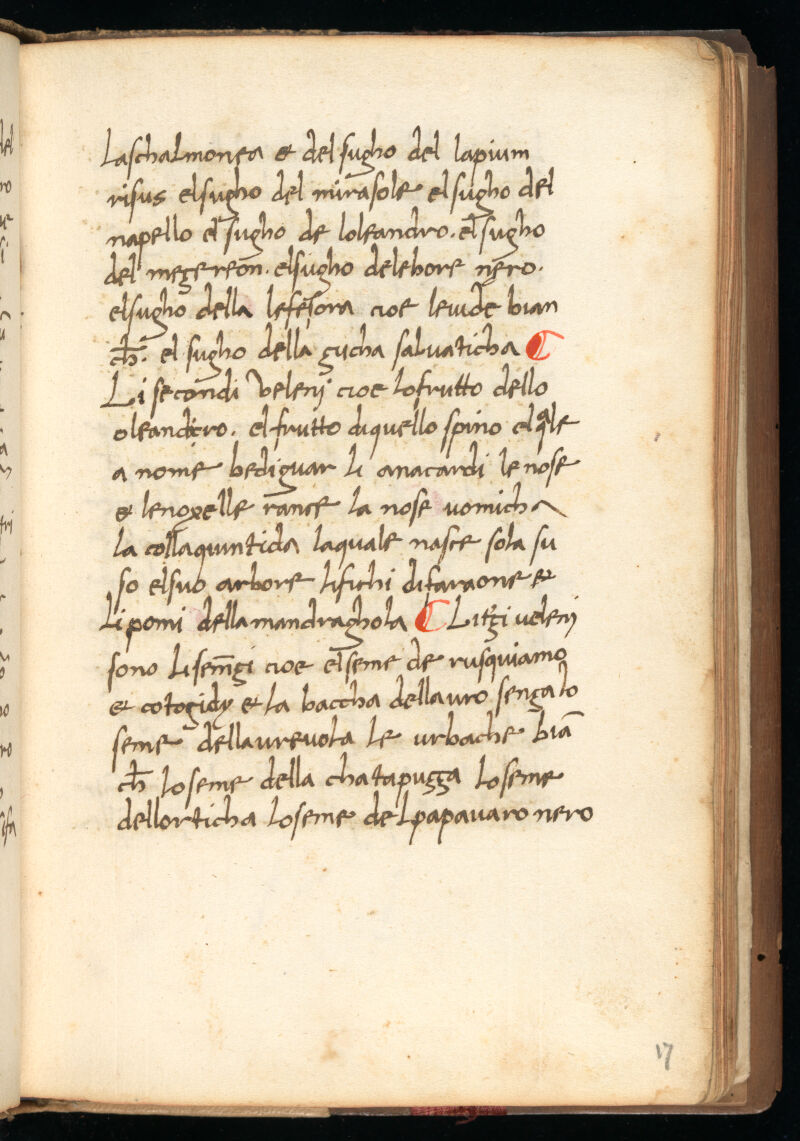 laschalmonea et del sugho del lapium
risus el sugho del mirasole el sugho del
napello el sugho de loleandro. el sugho
del megereon. el sugho delebore nero.
el sugho della lefetora cioe leuide bian
ch̄. el sugho della gucha salvaticha ¶
Li secondi veleni cioe lo frutto dello
oleandro. el frutto di quello spino el qle
a nome bediguar li anacardi le nose
et le noxelle rance la nose vomicha
la collaquintida la quale nasce sola su
so el suo arbore li fichi di faraone et
li pomi della mandraghola ¶ Li terzi veleni
sono li semgi cioe el seme de iusquiamo
et cotogidy et la baccha dellauro senga lo
seme della vrevola le urbache biā
ch̄ lo seme della chatapugga lo seme
dellorticha lo seme del papavaro nero
17